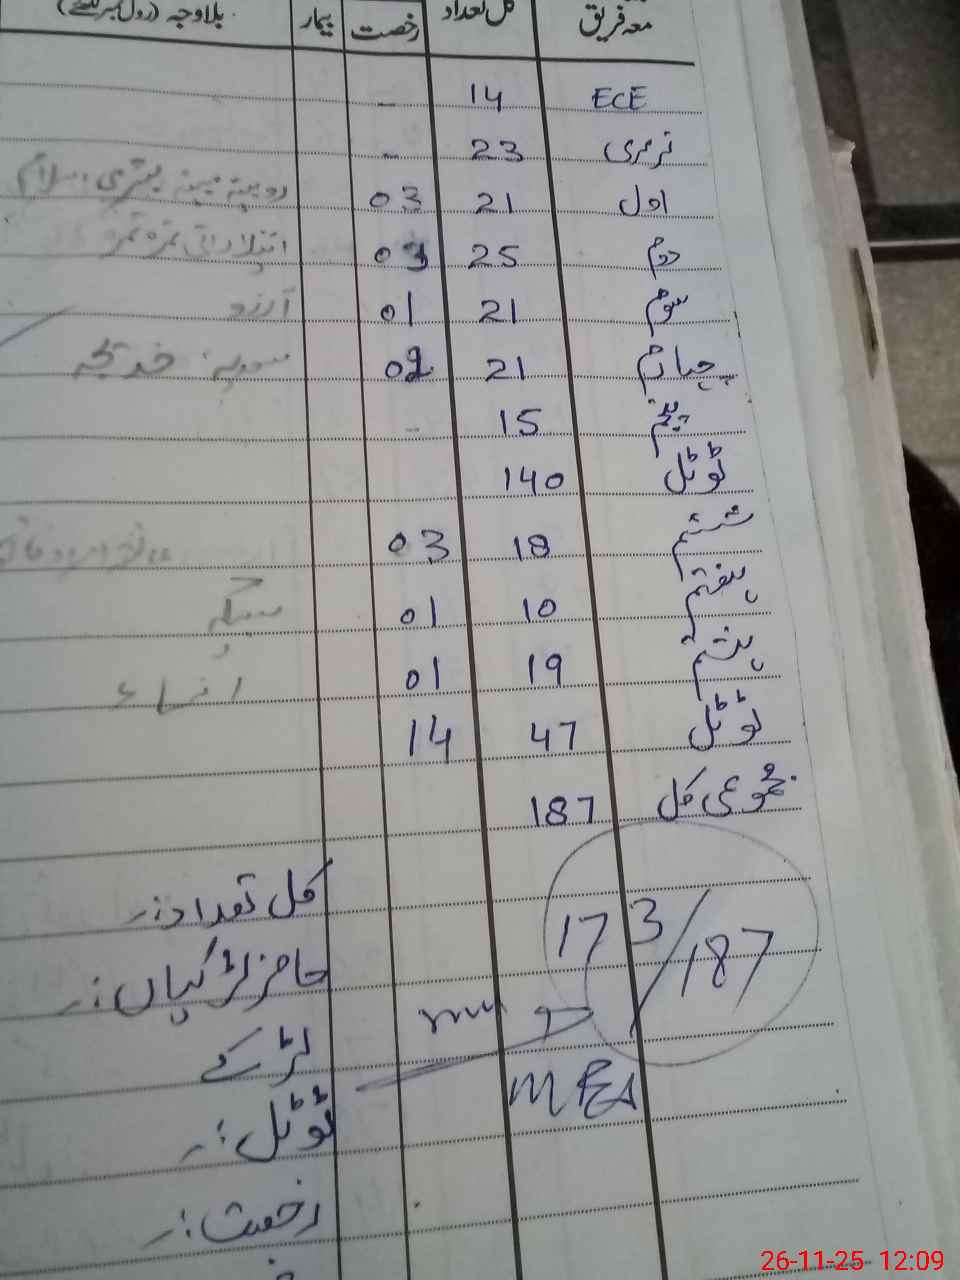 معہ فریق کل تعداد رخصت بیمار بلاوجہ (رول نمبر لکھیے)
ECE 14 -
نرسری 23 -
اول 21 03
دوم 25 03
سوم 21 01 آرزو
چہارم 21 02 خدیجہ
پنجم 15 -
ٹوٹل 140
ششم 18 03
ہفتم 10 01
ہشتم 19 01
ٹوٹل 47 14
مجموعی کل 187
کل تعداد:۔
173/187
حاضر لڑکیاں:۔
لڑکے
MEA
ٹوٹل:۔
رخصت:۔
26-11-25 12:09